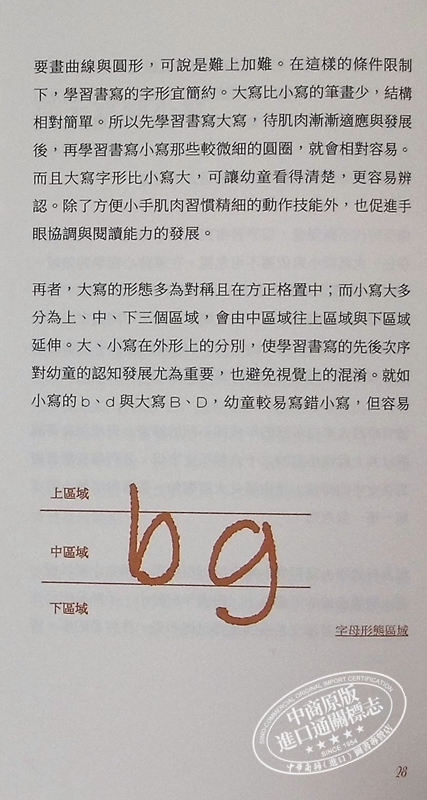 要畫曲線與圓形，可說是難上加難。在這樣的條件限制
下，學習書寫的字形宜簡約。大寫比小寫的筆畫少，結構
相對簡單。所以先學習書寫大寫，待肌肉漸漸適應與發展
後，再學習書寫小寫那些較微細的圓圈，就會相對容易。
而且大寫字形比小寫大，可讓幼童看得清楚，更容易辨
認。除了方便小手肌肉習慣精細的動作技能外，也促進手
眼協調與閱讀能力的發展。
再者，大寫的形態多為對稱且在方正格置中；而小寫大多
分為上、中、下三個區域，會由中區域往上區域與下區域
延伸。大、小寫在外形上的分別，使學習書寫的先後次序
對幼童的認知發展尤為重要，也避免視覺上的混淆。就如
小寫的b、d與大寫B、D，幼童較易寫錯小寫，但容易
上區域
中區域
下區域
b g
字母形態區域
中商原版
進口通關標志
SINCE 1954
28